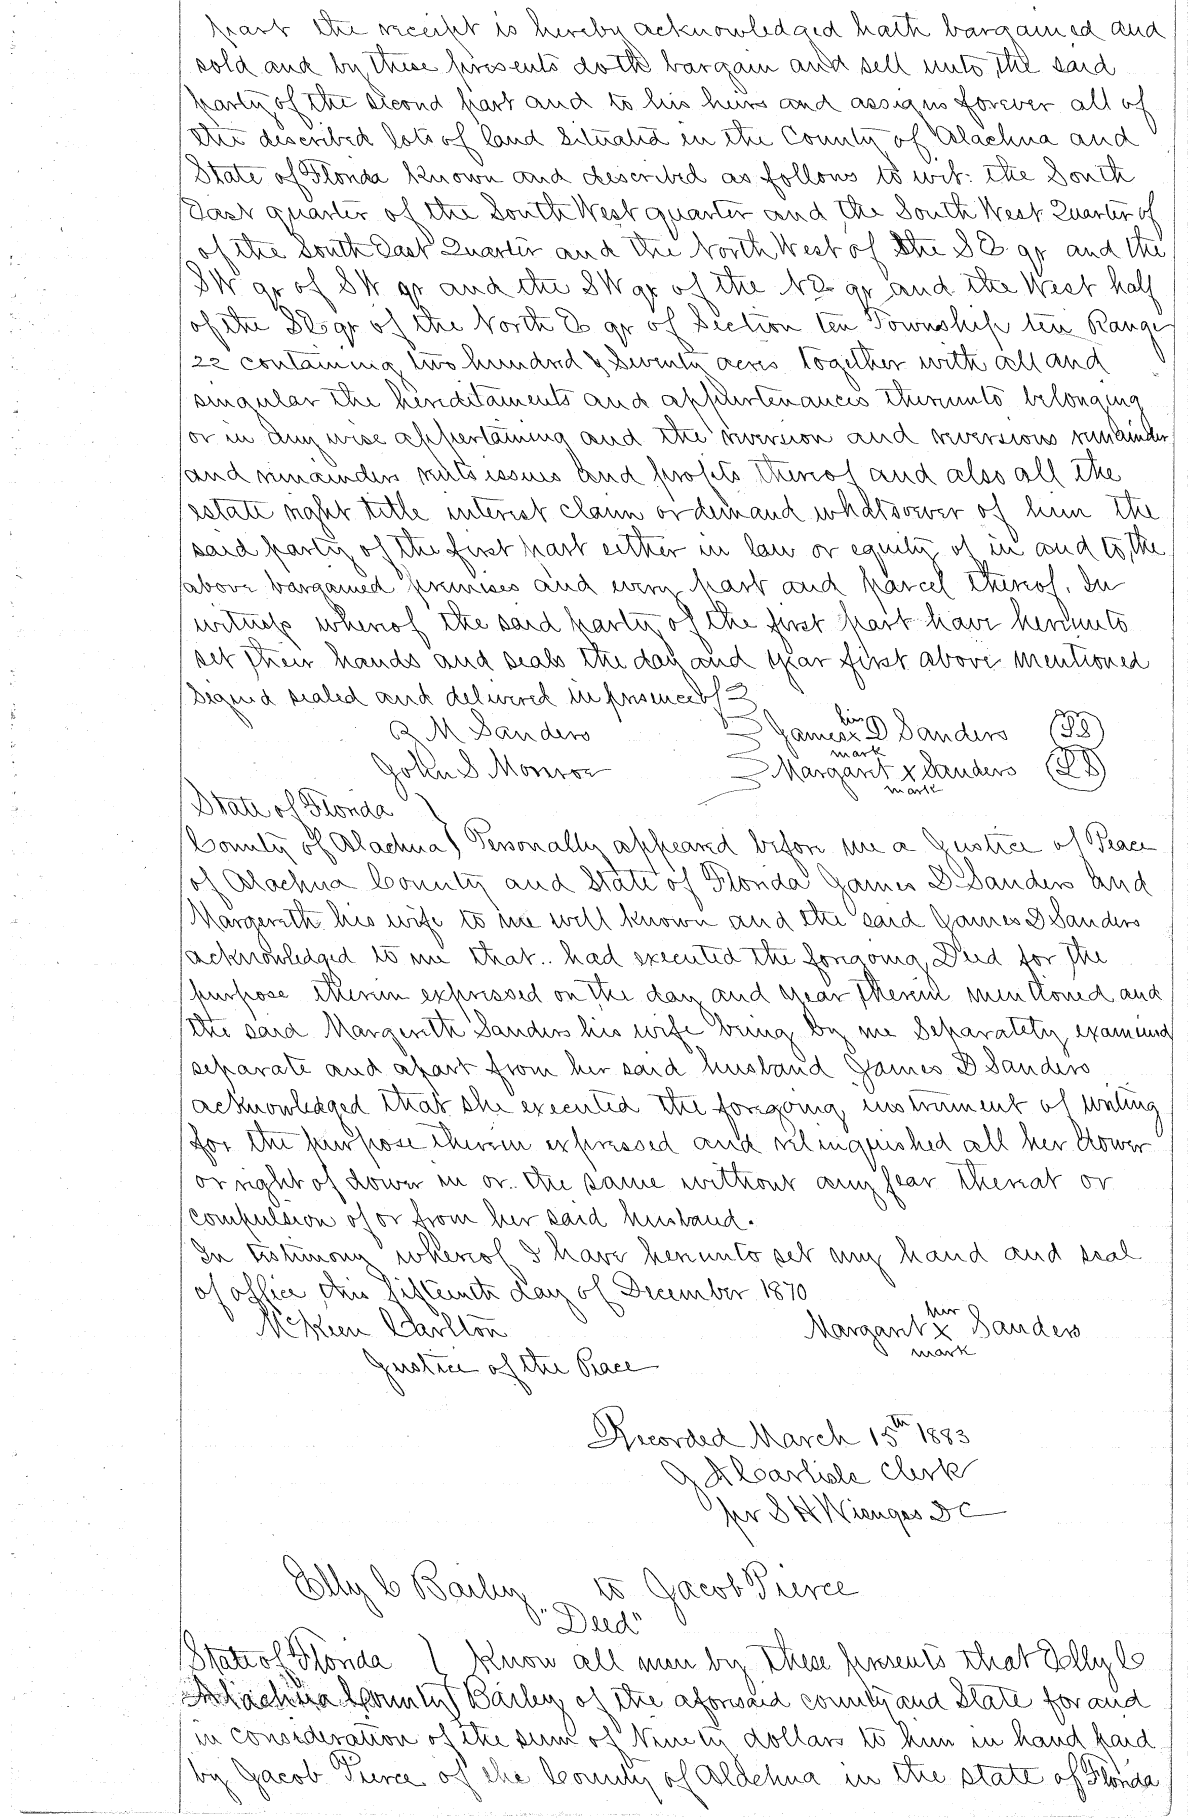 part the receipt is hereby acknowledged hath bargained and
sold and by these presents doth bargain and sell unto the said
party of the second part and to his heirs and assigns forever all of
the described lots of land situated in the County of Alachua and
State of Florida known and described as follows to wit: the South
East quarter of the South West quarter and the South West Quarter of
of the South East Quarter and the North West of the S E qr and the
SW qr of SW qr and the SW qr of the NE qr and the West half
of the SE qr of the North E qr of Section ten Township ten Range
22 containing two hundred & Seventy acres together with all and
singular the hereditaments and appurtenances thereunto belonging
or in any wise appertaining and the reversion and reversions remainder
and remainders rents issues and profits thereof and also all the
estate right title interest claim or demand whatsoever of him the
said party of the first part either in law or equity of in and to the
above bargained premises and every part and parcel thereof. In
witness whereof the said party of the first part have hereunto
set their hands and seals the day and year first above mentioned
Signed sealed and delivered in presence of
R M Sanders James his x mark D Sanders (LS)
John S Monroe Margaret x mark Sanders (LS)
State of Florida
County of Alachua } Personally appeared before me a Justice of Peace
of Alachua County and State of Florida James D Sanders and
Margereth his wife to me well known and the said James D Sanders
acknowledged to me that .. had executed the foregoing Deed for the
purpose therein expressed on the day and year therein mentioned and
the said Margereth Sanders his wife being by me Separately examined
separate and apart from her said husband James D Sanders
acknowledged that she executed the foregoing instrument of writing
for the purpose therein expressed and relinquished all her dower
or right of dower in or .. the same without any fear thereat or
compulsion of or from her said husband.
In testimony whereof I have hereunto set my hand and seal
of office this fifteenth day of December 1870
McKeen Carlton Margaret her x mark Sanders
Justice of the Peace
Recorded March 15th 1883
J A Carlisle Clerk
pr S H Wienges DC
Elly C Bailey to Jacob Pierce
"Deed"
State of Florida } Know all men by these presents that Elly C
Alachua County } Bailey of the aforesaid county and State for and
in consideration of the sum of Ninety dollars to him in hand paid
by Jacob Pierce of the County of Aldchua in the state of Florida